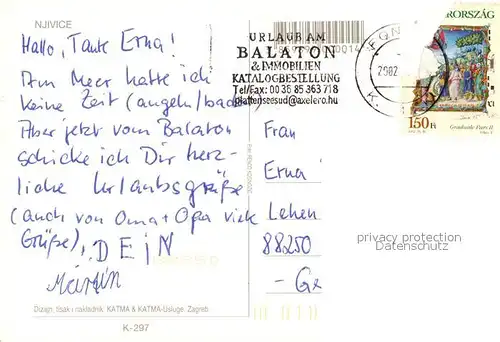 NJIVICE
Hallo, Tante Erna!
Am Meer hatte ich
keine Zeit (angeln/baden)
Aber jetzt vom Balaton
schicke ich Dir herz-
liche Urlaubsgrüße
(auch von Oma + Opa viele
Grüße), DEIN
Martin
Dizajn, tisak i nakladnik: KATMA & KATMA-Usluge, Zagreb
K-297
URLAUB AM
BALATON
& IMMOBILIEN
KATALOGBESTELLUNG
Tel/Fax: 0036 85 363 718
plattenseesud@axelero.hu
RORSZÁG
150Ft
Graduale Pars II
Frau
Erna
Lehen
88250
- Ge
privacy protection
Datenschutz